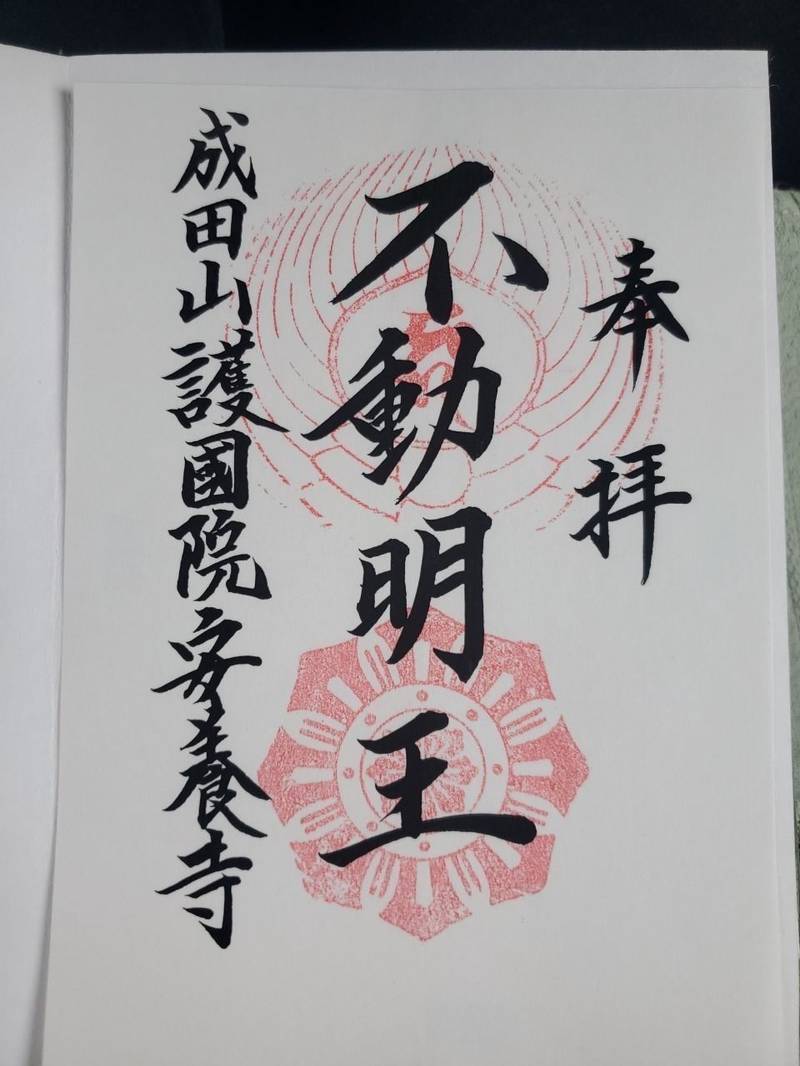 奉拝
不動明王
成田山護國院安養寺